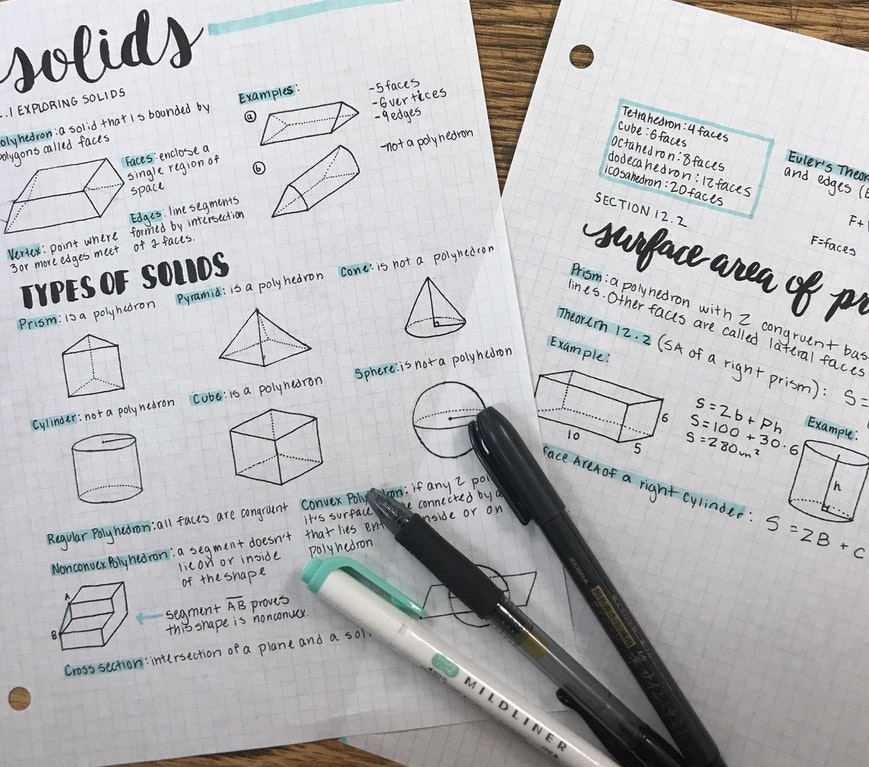 solids
.1 EXPLORING SOLIDS
olyhedron: a solid that is bounded by
olygons called faces
Faces: enclose a
single region of
space
Edges: line segments
formed by intersection
of 2 faces.
Vertex: point where
3 or more edges meet
Examples:
a
-5 faces
-6 vertices
-9 edges
b
-not a polyhedron
TYPES OF SOLIDS
Prism: is a polyhedron
Pyramid: is a polyhedron
Cone: is not a polyhedron
Cylinder: not a polyhedron
Cube: is a polyhedron
Sphere: is not a polyhedron
Regular Polyhedron: all faces are congruent
Nonconvex Polyhedron: a segment doesn't
lie on or inside
of the shape
A
B
segment AB proves
this shape is nonconvex.
Convex Polyhedron: if any 2 poi
it's surface connected by a
that lies ent inside or on
polyhedron
Cross section: intersection of a plane and a soli
Tetrahedron: 4 faces
Cube: 6 faces
Octahedron: 8 faces
dodecahedron: 12 faces
icosahedron: 20 faces
Euler's Theor
and edges (E
F+
F=faces
SECTION 12.2
surface area of pr
Prism: a polyhedron with 2 congruent bas
lines. Other faces are called lateral faces
Theorem 12.2 (SA of a right prism): S=
Example:
10
5
6
S=2b+Ph
S=100+30·6
S=280m²
Example:
h
face Area of a right cylinder: S=2B+C
ZEBRA
MILDLINER